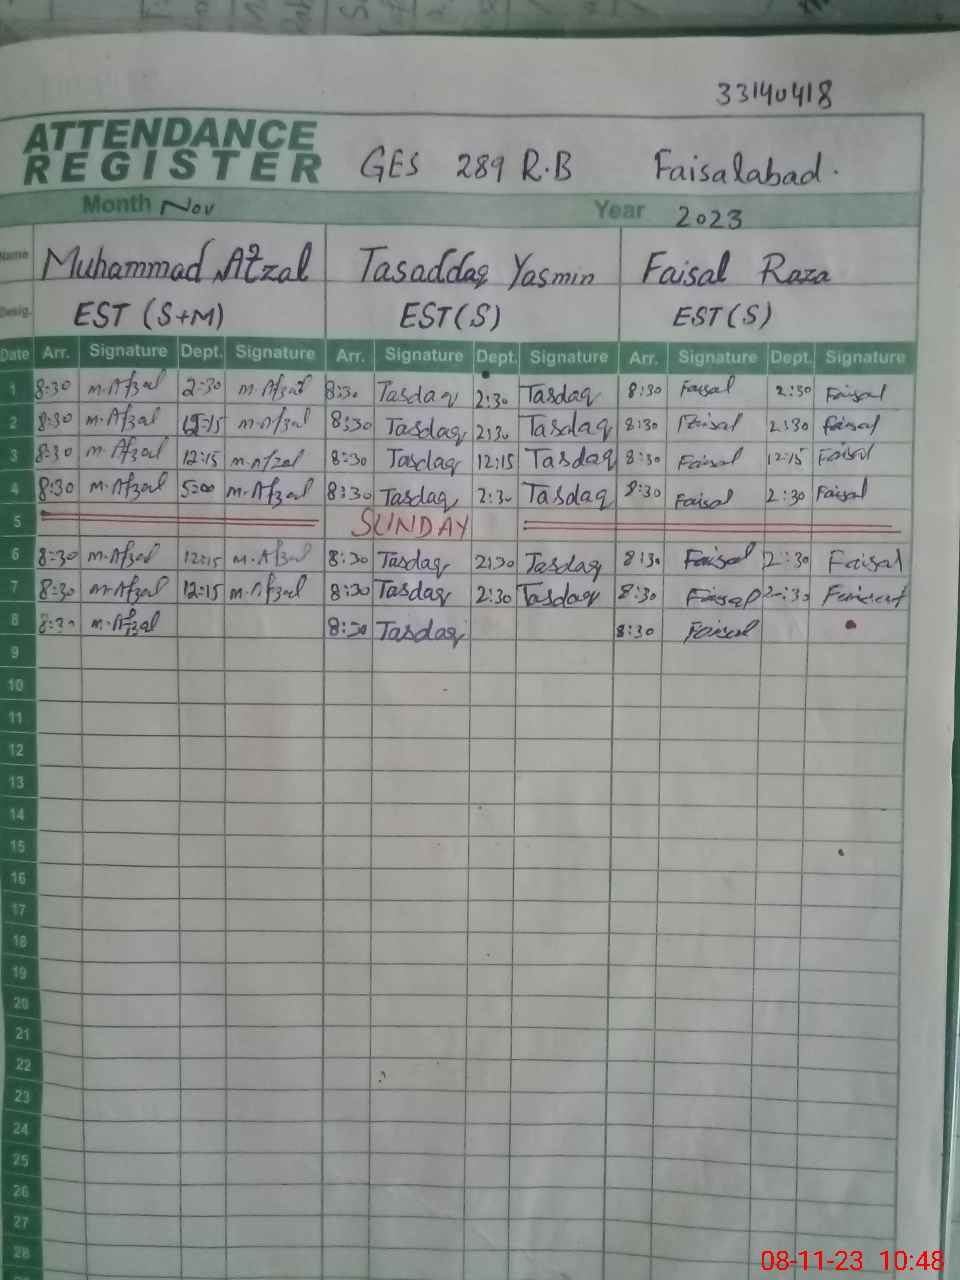 33140418
ATTENDANCE
REGISTER GES 289 R.B Faisalabad.
Month Nov Year 2023
Name Muhammad Afzal Tasaddaq Yasmin Faisal Raza
Desig. EST (S+M) EST(S) EST(S)
Date Arr. Signature Dept. Signature Arr. Signature Dept. Signature Arr. Signature Dept. Signature
1 8:30 M.Afzal 2:30 M.Afzal 8:30 Tasdaq 2:30 Tasdaq 8:30 Faisal 2:30 Faisal
2 8:30 M.Afzal 12:15 M.Afzal 8:30 Tasdaq 2:30 Tasdaq 8:30 Faisal 2:30 Faisal
3 8:30 M.Afzal 12:15 M.Afzal 8:30 Tasdaq 12:15 Tasdaq 8:30 Faisal 12:15 Faisal
4 8:30 M.Afzal 5:00 M.Afzal 8:30 Tasdaq 2:30 Tasdaq 8:30 Faisal 2:30 Faisal
5 SUNDAY
6 8:30 M.Afzal 12:15 M.Afzal 8:30 Tasdaq 2:30 Tasdaq 8:30 Faisal 2:30 Faisal
7 8:30 M.Afzal 12:15 M.Afzal 8:30 Tasdaq 2:30 Tasdaq 8:30 Faisal 2:30 Faisal
8 8:30 M.Afzal 8:30 Tasdaq 8:30 Faisal
9
10
11
12
13
14
15
16
17
18
19
20
21
22
23
24
25
26
27
28
08-11-23 10:48